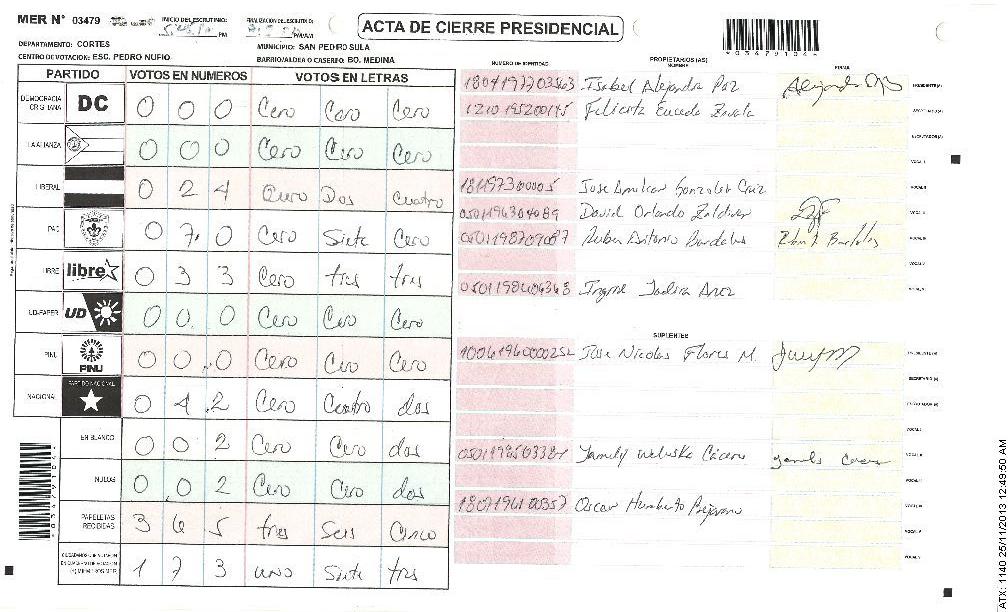 MER N° 03479 INICIO DEL ESCRUTINIO: PM FINALIZACION DEL ESCRUTINIO: PM/AM
ACTA DE CIERRE PRESIDENCIAL
*03479104*
DEPARTAMENTO: CORTES MUNICIPIO: SAN PEDRO SULA
CENTRO DE VOTACION: ESC. PEDRO NUFIO BARRIO/ALDEA O CASERIO: BO. MEDINA
NUMERO DE IDENTIDAD PROPIETARIOS (AS) NOMBRE FIRMA
PARTIDO VOTOS EN NUMEROS VOTOS EN LETRAS
DEMOCRACIA CRISTIANA DC 0 0 0 Cero Cero Cero
LA ALIANZA 0 0 0 Cero Cero Cero
LIBERAL 0 2 4 Cero Dos cuatro
PAC 0 7 0 Cero Siete Cero
LIBRE libre 0 3 3 Cero tres tres
UD-FAPER UD 0 0 0 Cero Cero Cero
PINU PINU 0 0 0 Cero Cero Cero
NACIONAL PARTIDO NACIONAL 0 4 2 Cero Cuatro dos
EN BLANCO 0 0 2 Cero Cero dos
NULOS 0 0 2 Cero Cero dos
PAPELETAS RECIBIDAS 3 6 5 tres Seis Cinco
CIUDADANOS QUE VOTARON EN CUADERNO DE VOTACION (+) MIEMBROS MER 1 7 3 uno Siete tres
1804197703563 Isabel Alejandra Paz PRESIDENTE(A)
Felicita Euceda Zavala SECRETARIO(A)
ESCRUTADOR(A)
VOCAL I
Jose Amilcar Gonzalez Cruz VOCAL II
0501196304089 David Orlando Zaldivar
0501198709087 Ruben Antonio Bardales
Ingme Jadira
SUPLENTES
1004196000252 Jose Nicolas Flores M. PRESIDENTE(A)
SECRETARIO(A)
ESCRUTADOR(A)
VOCAL I
0501198503384 Yamily Weluska Caceres VOCAL II
1807196100357 Oscar Humberto Bejarano
*03479104*
ATX: 1140 25/11/2013 12:49:50 AM